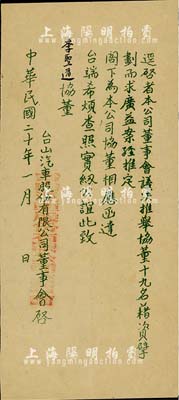 逕啓者本公司董事會議決推舉協董十九名藉資擘
劃而求廣益案經推定
閣下為本公司協董相應函達
台端希煩查照實紉公誼此致
李聖道協董
台山汽車股份有限公司董事會啓
中華民國二十年一月 日
上海陽明拍賣
上海陽明拍賣
上海陽明拍賣